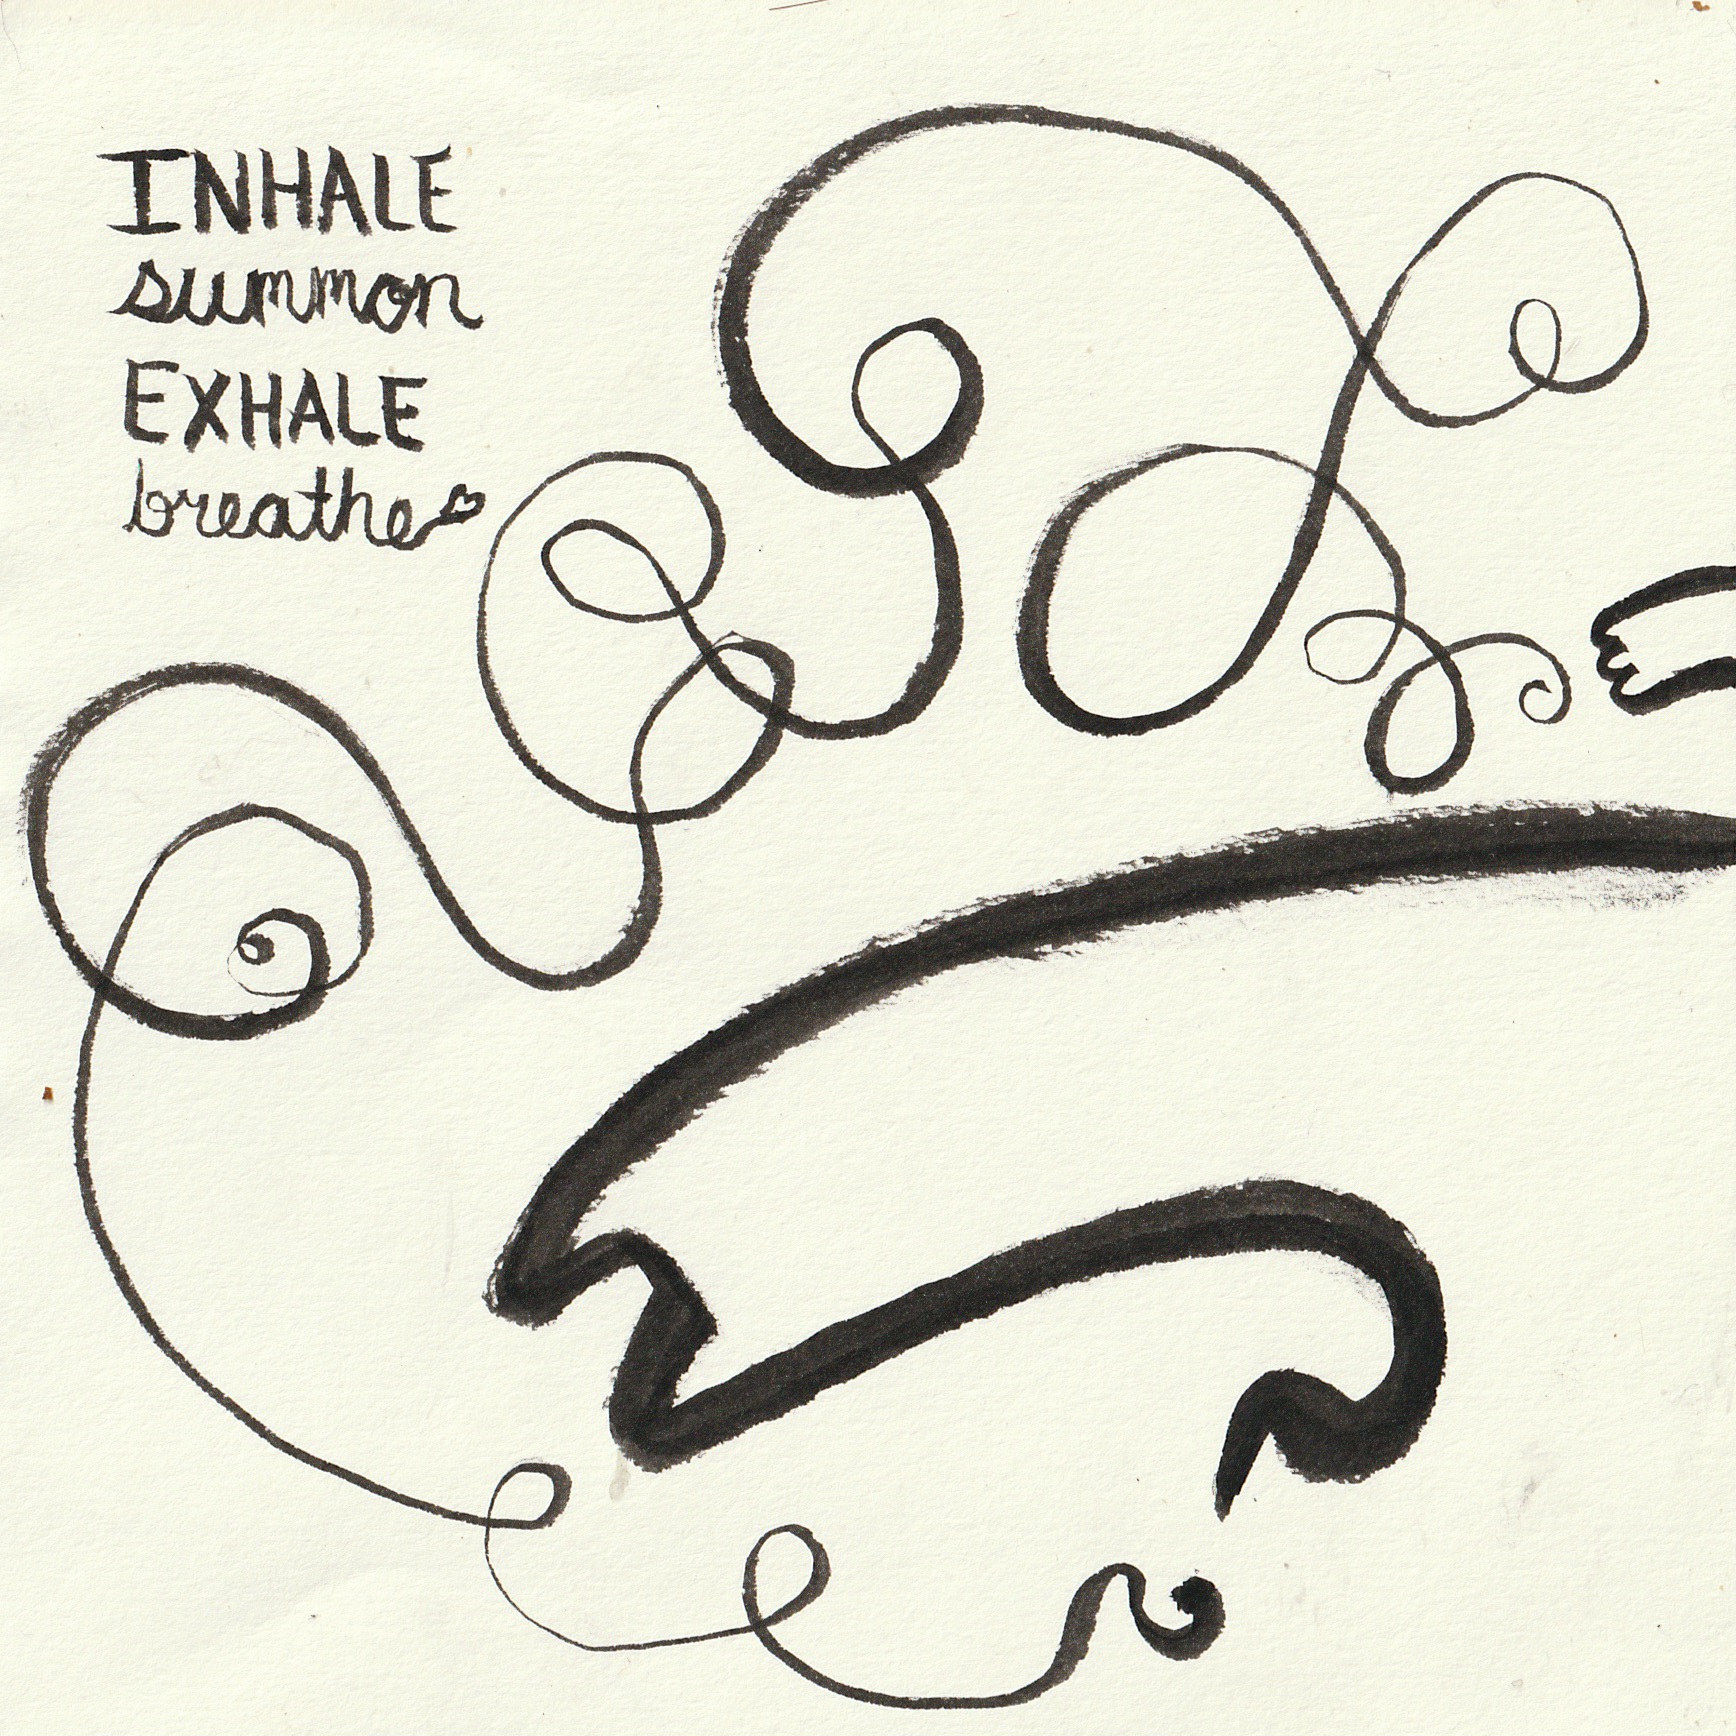 INHALE
summon
EXHALE
breathe